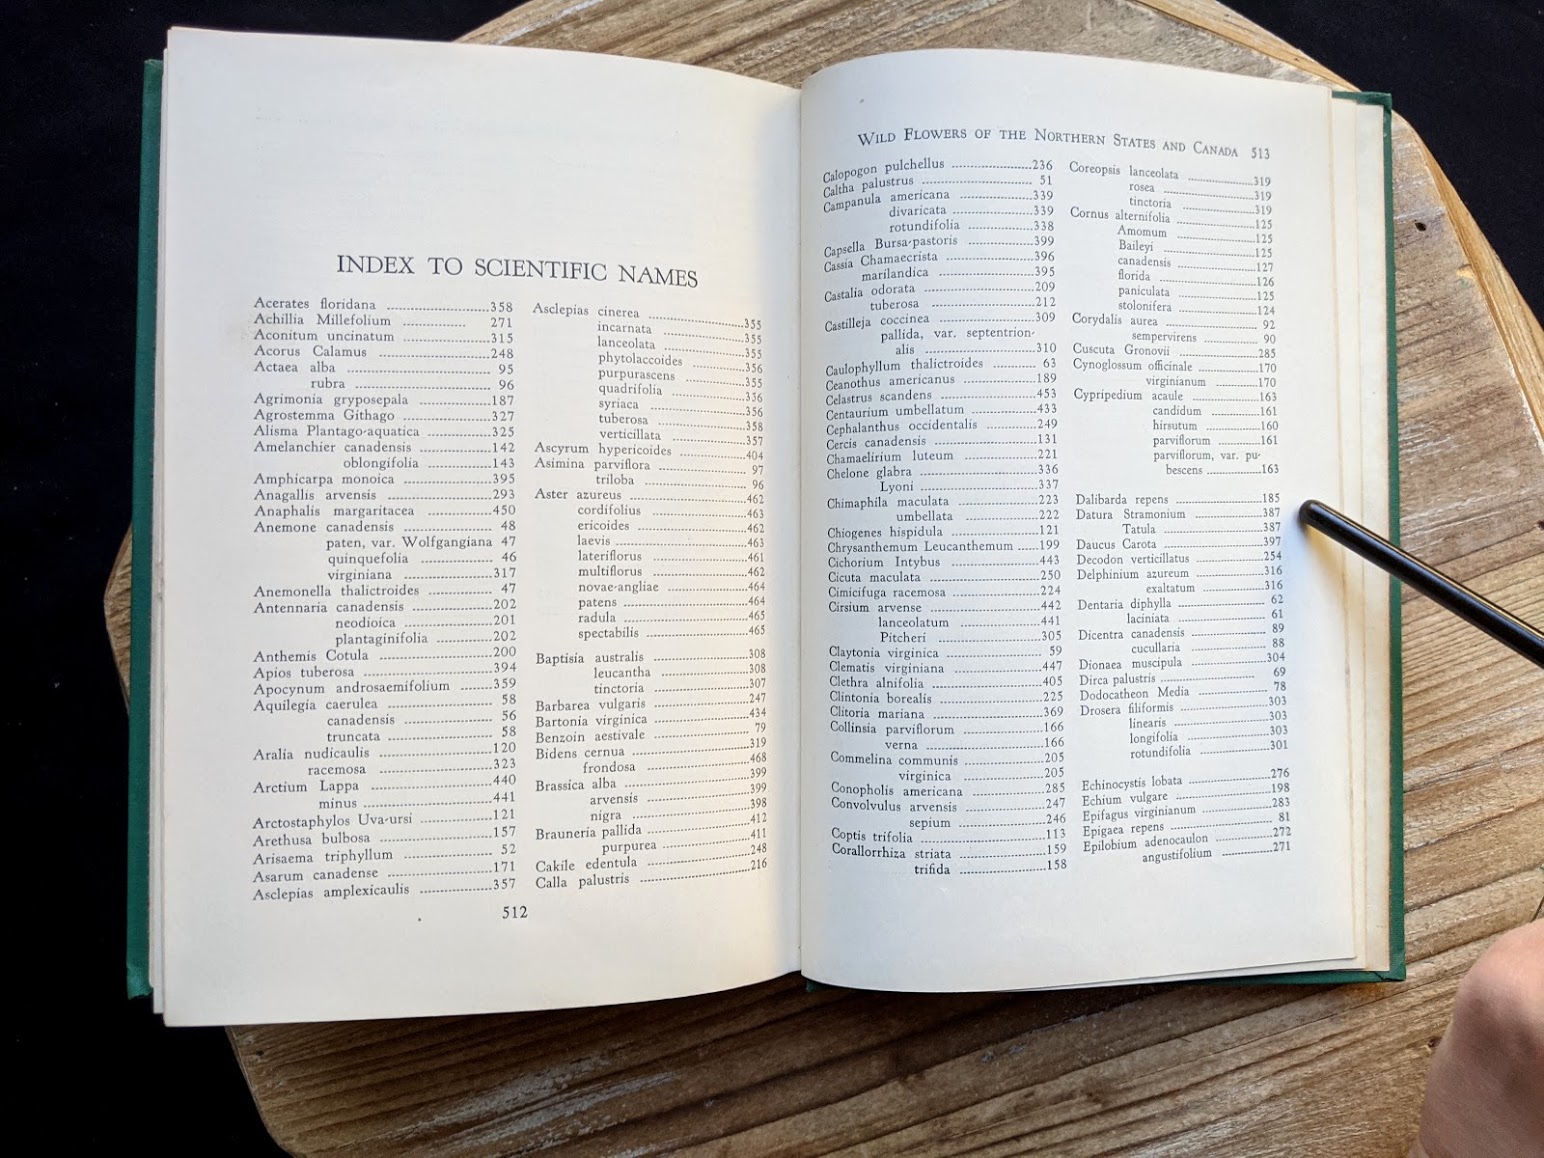 INDEX TO SCIENTIFIC NAMES
Acerates floridana 358
Achillia Millefolium 271
Aconitum uncinatum 315
Acorus Calamus 248
Actaea alba 95
rubra 96
Agrimonia gryposepala 187
Agrostemma Githago 327
Alisma Plantago-aquatica 325
Amelanchier canadensis 142
oblongifolia 143
Amphicarpa monoica 395
Anagallis arvensis 293
Anaphalis margaritacea 450
Anemone canadensis 48
paten, var. Wolfgangiana 47
quinquefolia 46
virginiana 317
Anemonella thalictroides 47
Antennaria canadensis 202
neodioica 201
plantaginifolia 202
Anthemis Cotula 200
Apios tuberosa 394
Apocynum androsaemifolium 359
Aquilegia caerulea 58
canadensis 56
truncata 58
Aralia nudicaulis 120
racemosa 323
Arctium Lappa 440
minus 441
Arctostaphylos Uva-ursi 121
Arethusa bulbosa 157
Arisaema triphyllum 52
Asarum canadense 171
Asclepias amplexicaulis 357
Asclepias cinerea 355
incarnata 355
lanceolata 355
phytolaccoides 356
purpurascens 355
quadrifolia 356
syriaca 356
tuberosa 358
verticillata 357
Ascyrum hypericoides 404
Asimina parviflora 97
triloba 96
Aster azureus 462
cordifolius 463
ericoides 462
laevis 463
lateriflorus 461
multiflorus 462
novae-angliae 464
patens 464
radula 465
spectabilis 465
Baptisia australis 308
leucantha 308
tinctoria 307
Barbarea vulgaris 247
Bartonia virginica 434
Benzoin aestivale 79
Bidens cernua 319
frondosa 468
Brassica alba 399
arvensis 399
nigra 398
Brauneria pallida 412
purpurea 411
Cakile edentula 248
Calla palustris 216
512
WILD FLOWERS OF THE NORTHERN STATES AND CANADA 513
Calopogon pulchellus 236
Caltha palustrus 51
Campanula americana 339
divaricata 339
rotundifolia 338
Capsella Bursa-pastoris 399
Cassia Chamaecrista 396
marilandica 395
Castalia odorata 209
tuberosa 212
Castilleja coccinea 309
pallida, var. septentrion-
alis 310
Caulophyllum thalictroides 63
Ceanothus americanus 189
Celastrus scandens 453
Centaurium umbellatum 433
Cephalanthus occidentalis 249
Cercis canadensis 131
Chamaelirium luteum 221
Chelone glabra 336
Lyoni 337
Chimaphila maculata 223
umbellata 222
Chiogenes hispidula 121
Chrysanthemum Leucanthemum 199
Cichorium Intybus 443
Cicuta maculata 250
Cimicifuga racemosa 224
Cirsium arvense 442
lanceolatum 441
Pitcheri 305
Claytonia virginica 59
Clematis virginiana 447
Clethra alnifolia 405
Clintonia borealis 225
Clitoria mariana 369
Collinsia parviflorum 166
verna 166
Commelina communis 205
virginica 205
Conopholis americana 285
Convolvulus arvensis 247
sepium 246
Coptis trifolia 113
Corallorrhiza striata 159
trifida 158
Coreopsis lanceolata 319
rosea 319
tinctoria 319
Cornus alternifolia 125
Amomum 125
Baileyi 125
canadensis 127
florida 126
paniculata 125
stolonifera 124
Corydalis aurea 92
sempervirens 90
Cuscuta Gronovii 285
Cynoglossum officinale 170
virginianum 170
Cypripedium acaule 163
candidum 161
hirsutum 160
parviflorum 161
parviflorum, var. pu-
bescens 163
Dalibarda repens 185
Datura Stramonium 387
Tatula 387
Daucus Carota 397
Decodon verticillatus 254
Delphinium azureum 316
exaltatum 316
Dentaria diphylla 62
laciniata 61
Dicentra canadensis 89
cucullaria 88
Dionaea muscipula 304
Dirca palustris 69
Dodocatheon Media 78
Drosera filiformis 303
linearis 303
longifolia 303
rotundifolia 301
Echinocystis lobata 276
Echium vulgare 198
Epifagus virginianum 283
Epigaea repens 81
Epilobium adenocaulon 272
angustifolium 271